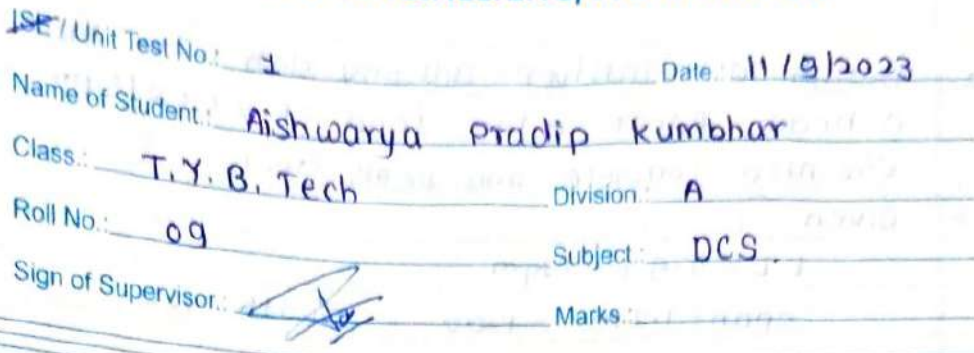 ISE / Unit Test No.: 1 Date.: 11/9/2023
Name of Student.: Aishwarya Pradip kumbhar
Class.: T.Y. B. Tech Division: A
Roll No.: 09 Subject: DCS.
Sign of Supervisor.: Marks.: